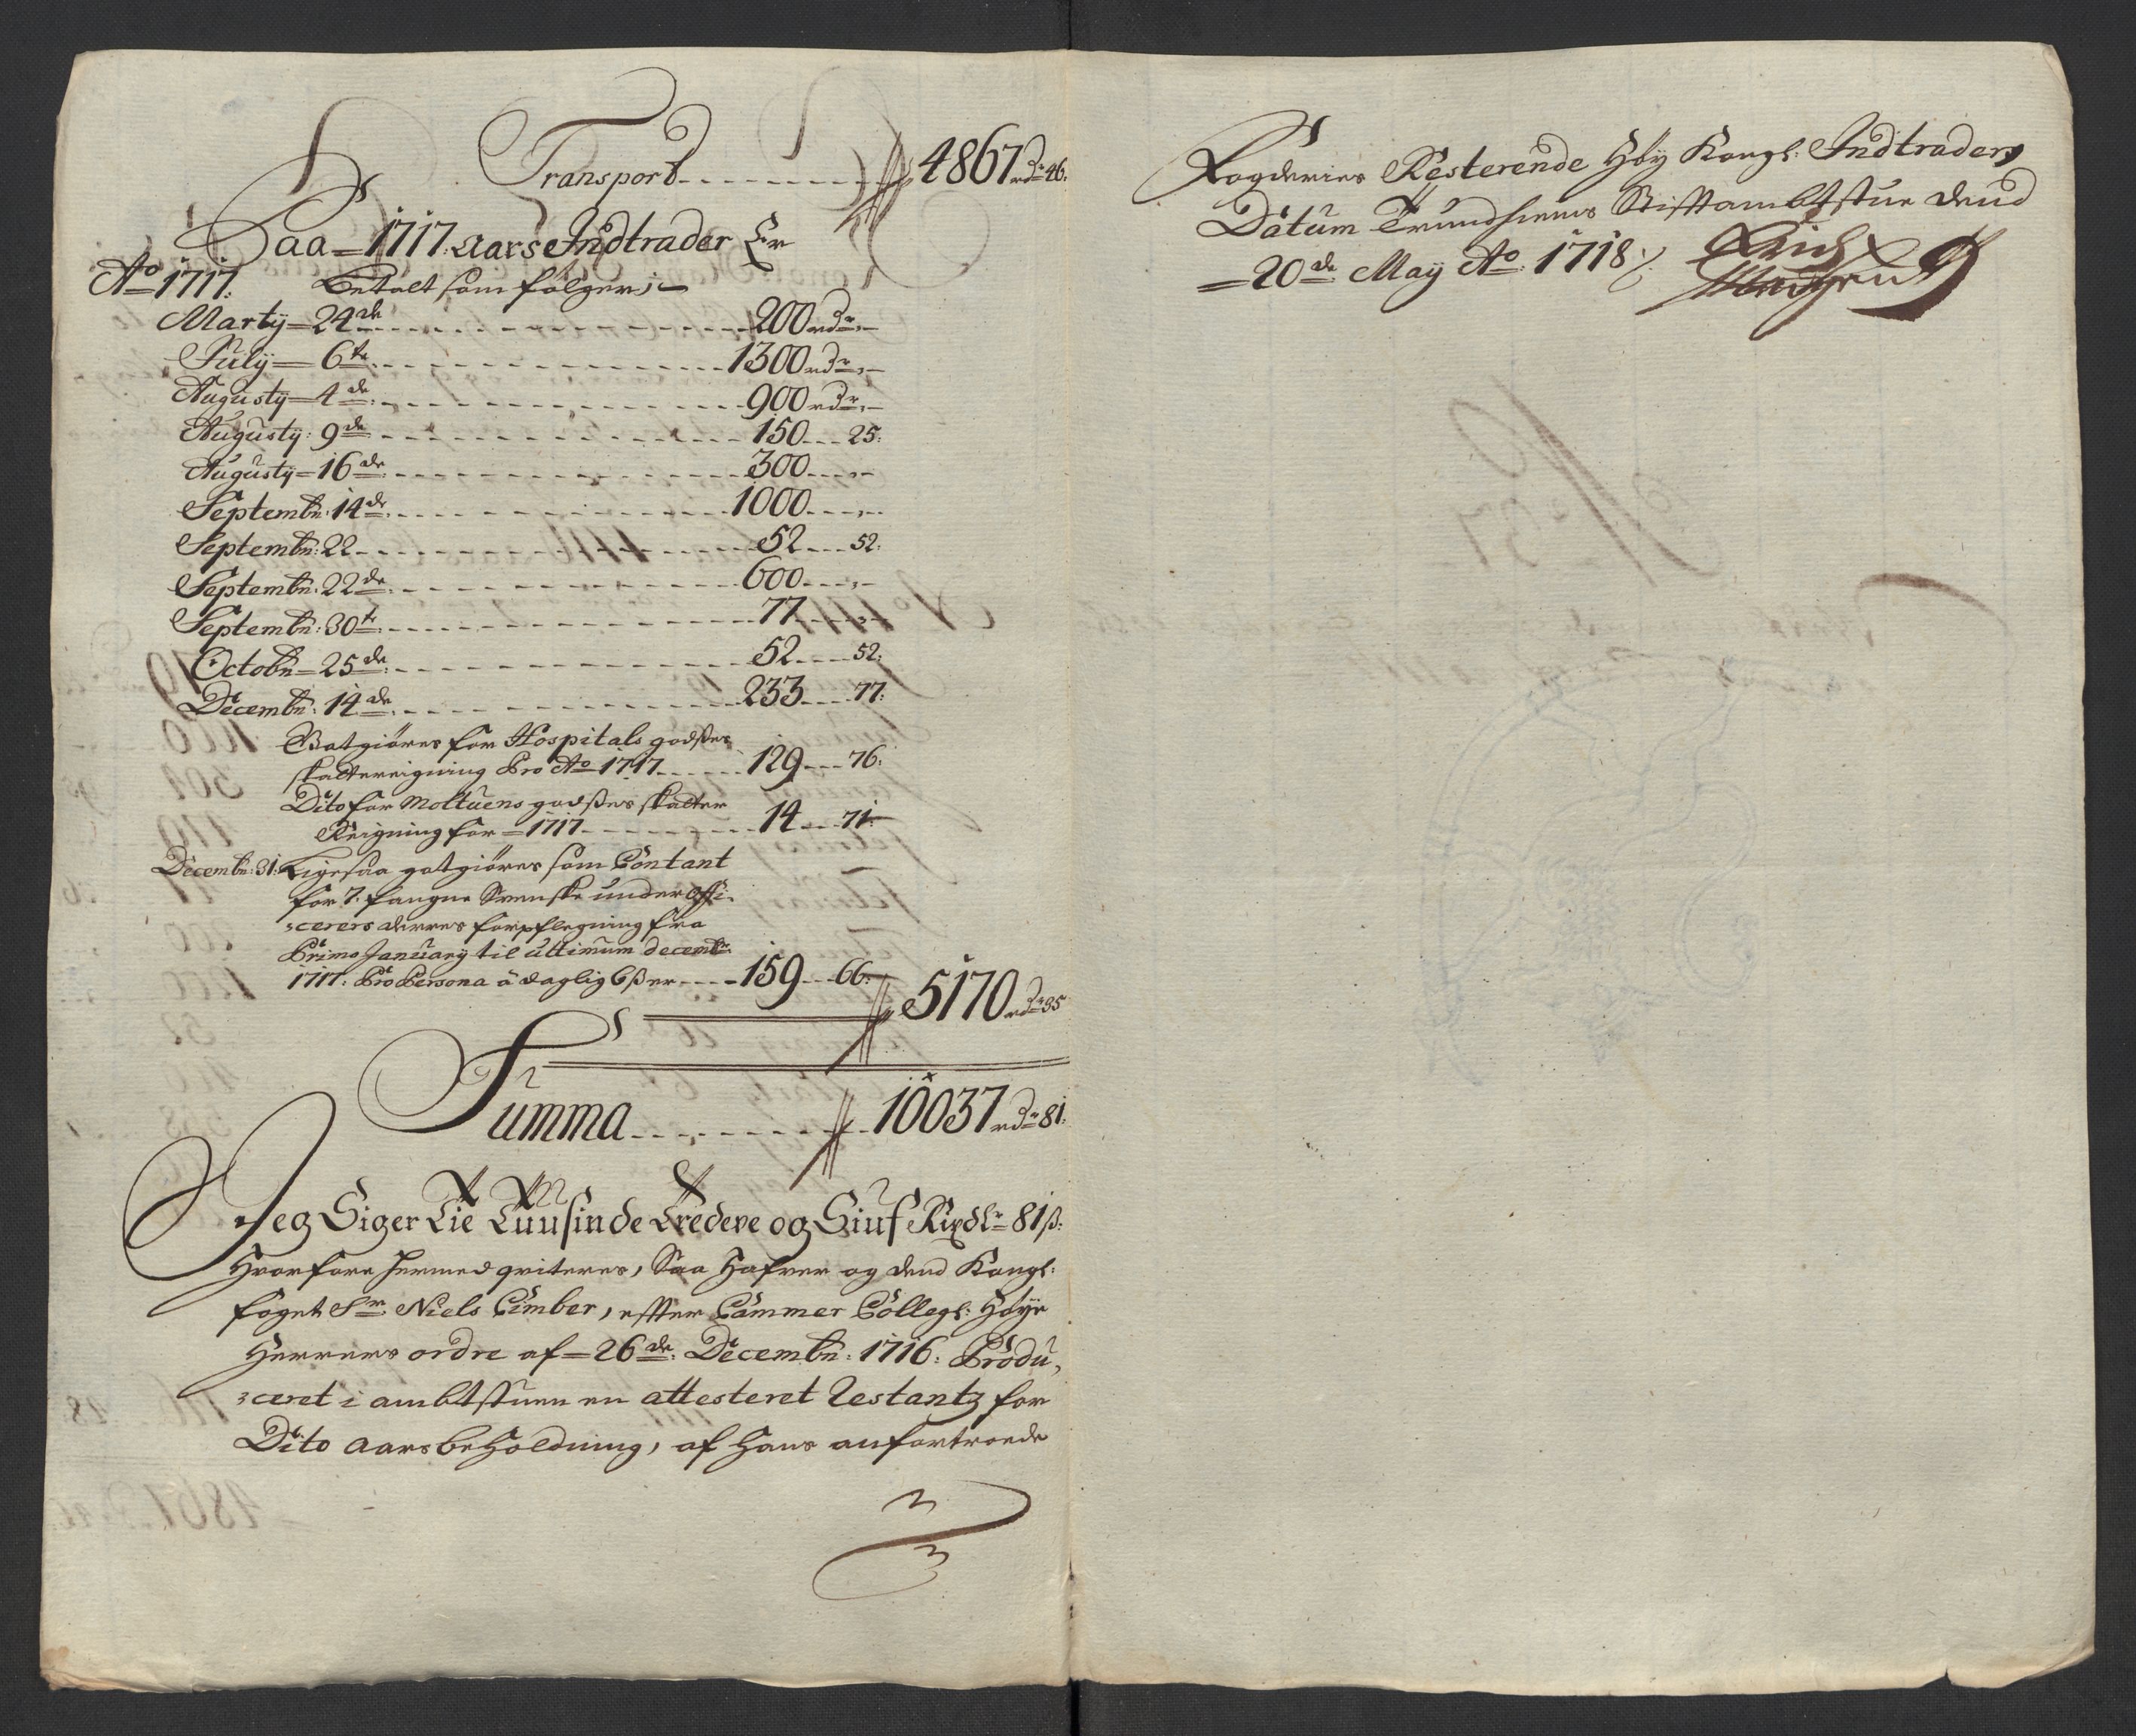 Transport 4867 rdr 46:
Paa 1717: aars Indtrader Er
Ao 1717: Betalt som følger;
Marty 24de 200 rdr „
July 6te 1300 rdr „
Augusty 4de 900 rdr „
Augusty: 9de 150 25:
Augusty 16de 300 „
Septembr: 14de 1000 „
Septembr: 22 52 52:
Septembr: 22de 600 „
Septembr: 30te 77 „
Octobr 25de 52 52:
Decembr: 14de 233 77:
Godtgiøres for Hospitals godsses
skattereigning Pro Ao 1717 129 76:
Dito for Moltuens godsses skatter
Reigning for 1717 14 71:
Decembr: 31: Ligesaa gotgiøres som Contant
for 7 fangne Svenske underoffi
cerers deres forpflegning fra
Primo January til ultimum decembr
1717: Pro Persona á daglig 6 ß er 159 66:
5170 rdr 35
Summa 10037 rdr 81:
Jeg Siger Tie Tuusinde Tredeve og Siuf Rixdlr 81 ß:
Hvorfore hermed qviteres, Saa Hafver og dend Kongl:
foget Sr Niels Cimber, effter Cammer Collegl: Høye
Herrers ordre af 26de Decembr: 1716: Produ
ceret i ambtstuen en attesteret Restantz for
Dito aars beholdning, af hans anfortroede
Fogderies Resterende Høy Kongl: Indtrader
Datum Trundhiems Stifftambtstue dend
20de May Ao: 1718